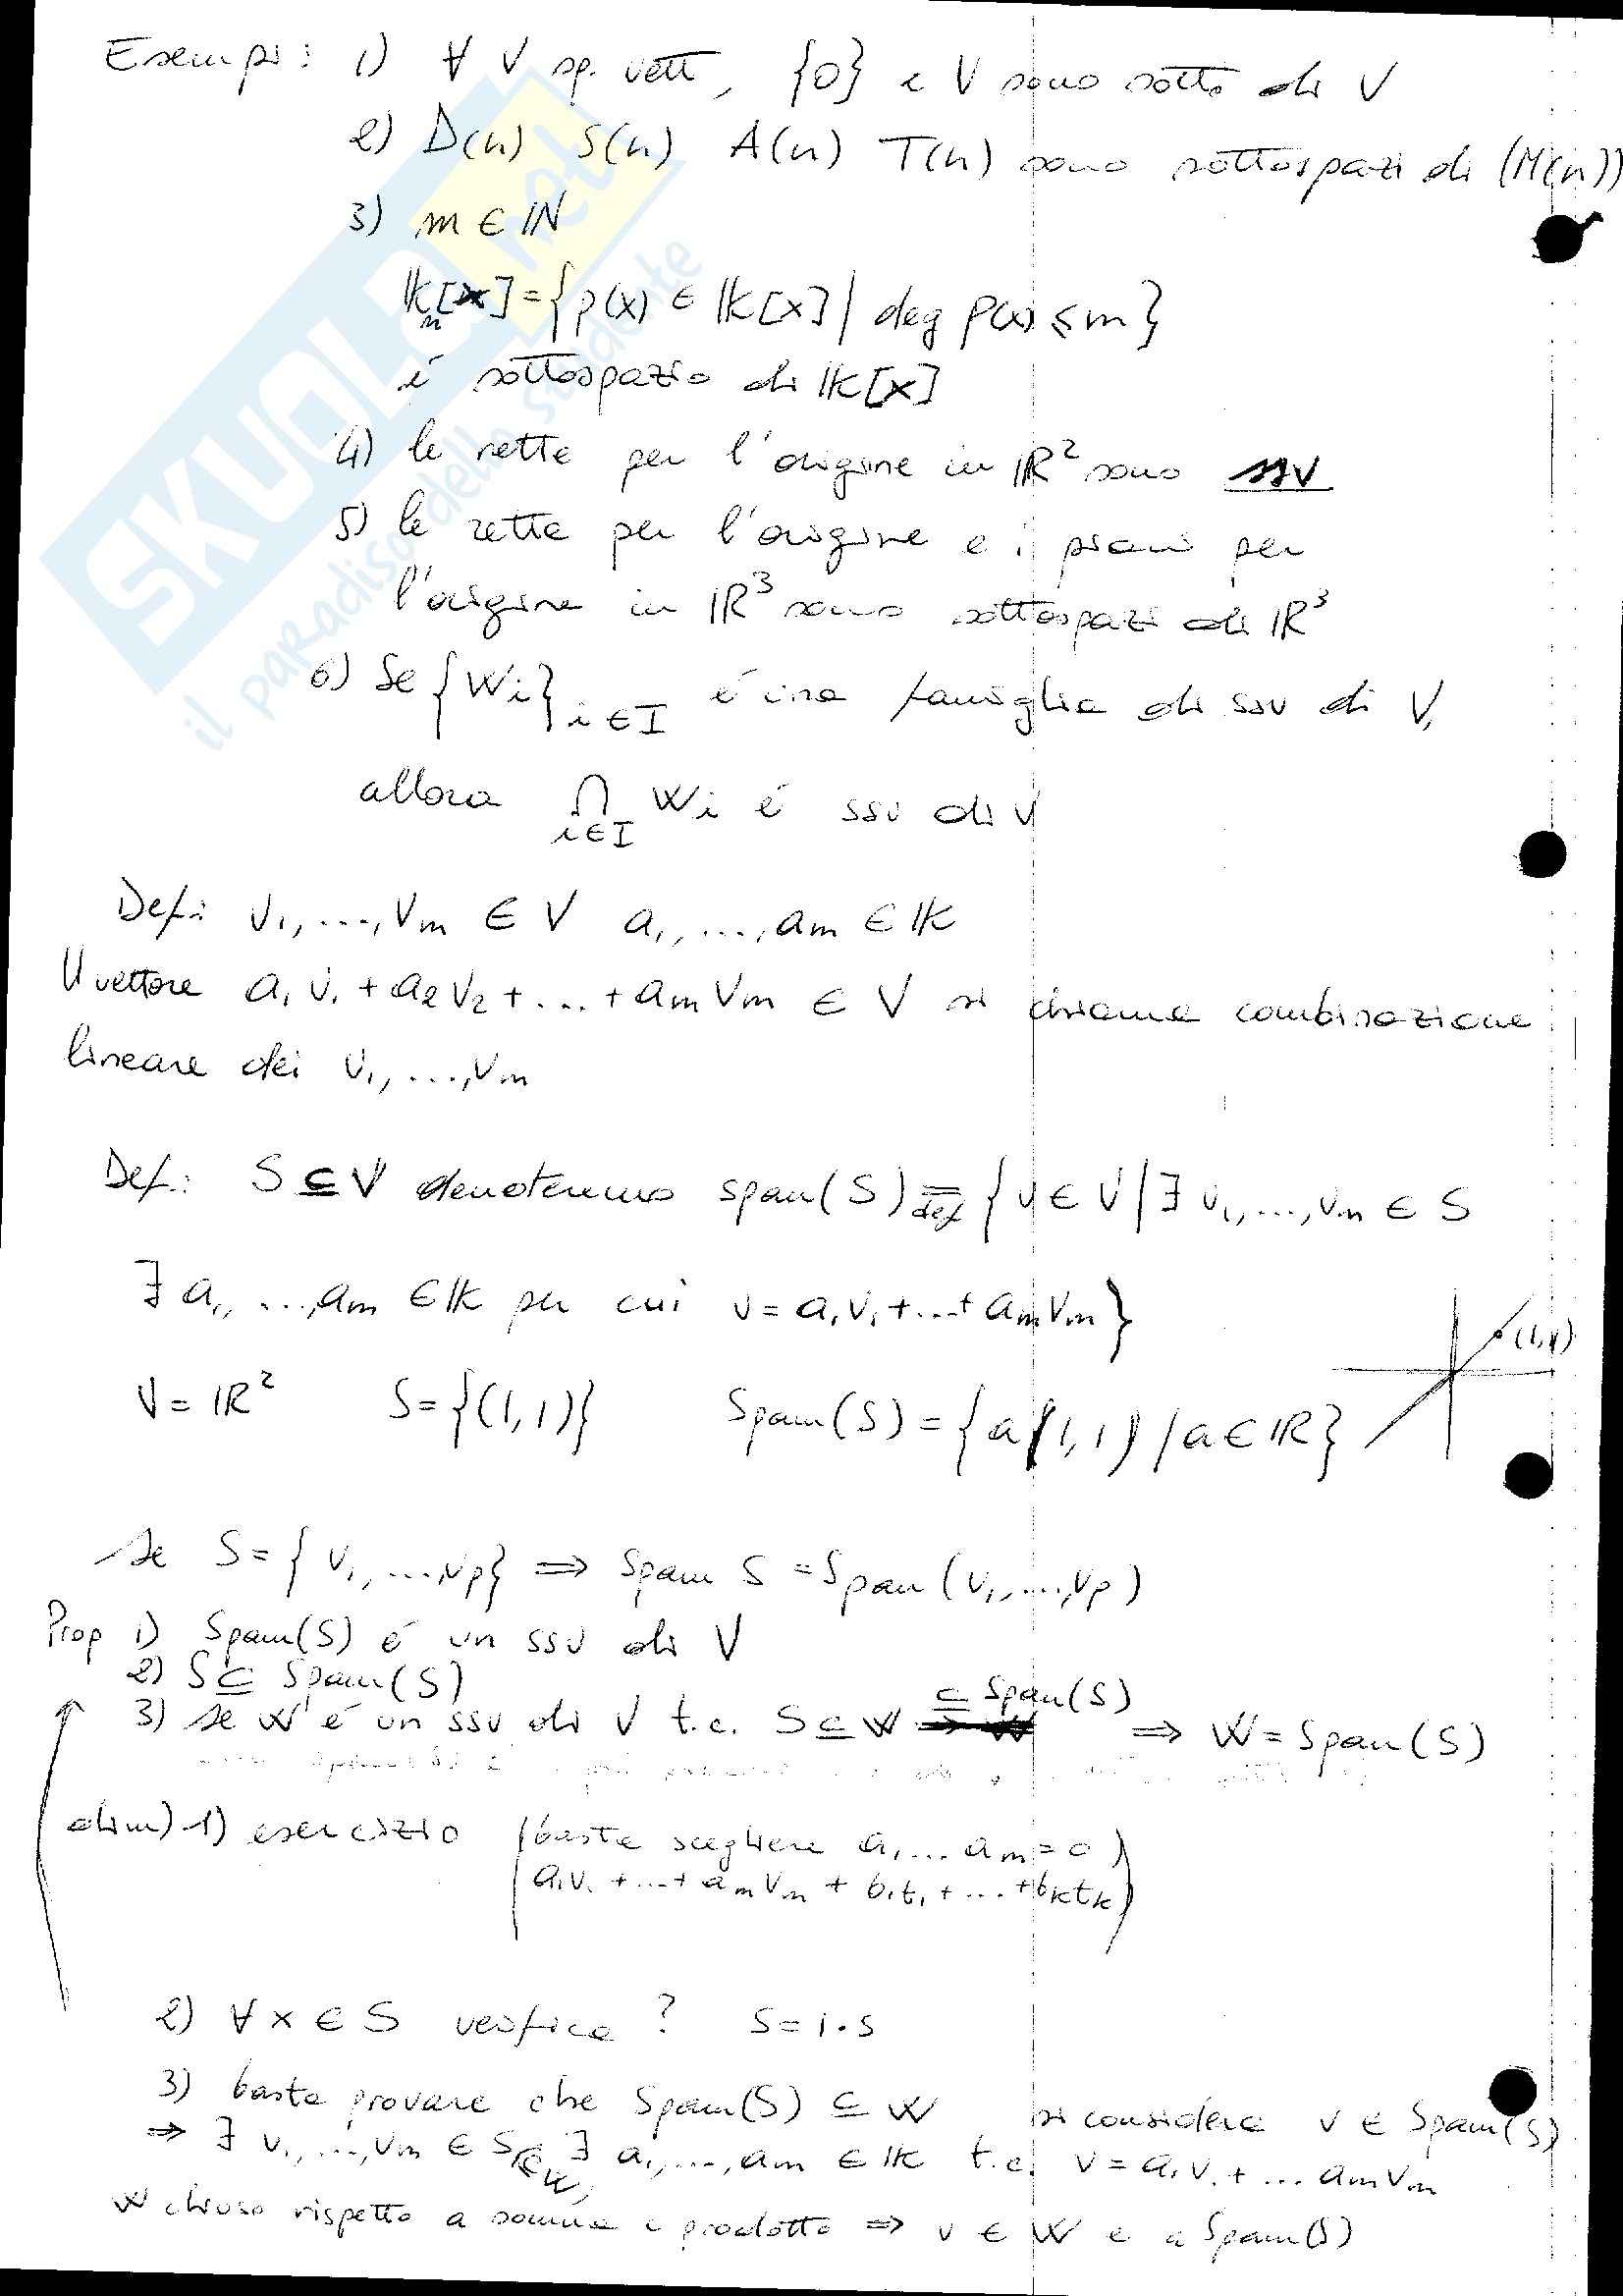 Esempi: 1) ∀ V sp. vett, {0} e V sono sotto di V
2) D(n) S(n) A(n) T(n) sono sottospazi di (M(n))
3) m ∈ ℕ
𝕂ₙ[x] = {p(x) ∈ 𝕂[x] | deg p(x) ≤ m}
é sottospazio di 𝕂[x]
4) le rette per l'origine in ℝ² sono ssv
5) le rette per l'origine e i piani per
l'origine in ℝ³ sono sottospazi di ℝ³
6) Se {Wi}i∈I é una famiglia di ssv di V,
allora ⋂i∈I Wi é ssv di V
Def: v₁, ..., vm ∈ V a₁, ..., am ∈ 𝕂
Il vettore a₁v₁ + a₂v₂ + ... + amvm ∈ V si chiama combinazione
lineare dei v₁, ..., vm
Def: S ⊆ V denoteremo span(S) =def {v ∈ V | ∃ v₁, ..., vm ∈ S
∃ a₁, ..., am ∈ 𝕂 per cui v = a₁v₁ + ... + amvm}
(1,1)
V = ℝ² S = {(1,1)} Span(S) = {a(1,1) / a ∈ ℝ}
se S = {v₁, ..., vp} ⇒ Span S = Span(v₁, ..., vp)
Prop 1) Span(S) é un ssv di V
2) S ⊆ Span(S)
3) se W é un ssv di V t.c. S ⊆ W ⊆ Span(S) ⇒ W = Span(S)
dim) 1) esercizio (basta scegliere a₁ ... am = 0)
(a₁v₁ + ... + amvm + b₁t₁ + ... + bktk)
2) ∀ x ∈ S verifica? s = 1·s
3) basta provare che Span(S) ⊆ W si considera v ∈ Span(S)
⇒ ∃ v₁, ..., vm ∈ S(∈W), ∃ a₁, ..., am ∈ 𝕂 t.c. v = a₁v₁ + ... amvm
W chiuso rispetto a somma e prodotto ⇒ v ∈ W e a Span(S)
SKUOLA.net
il paradiso dello studente